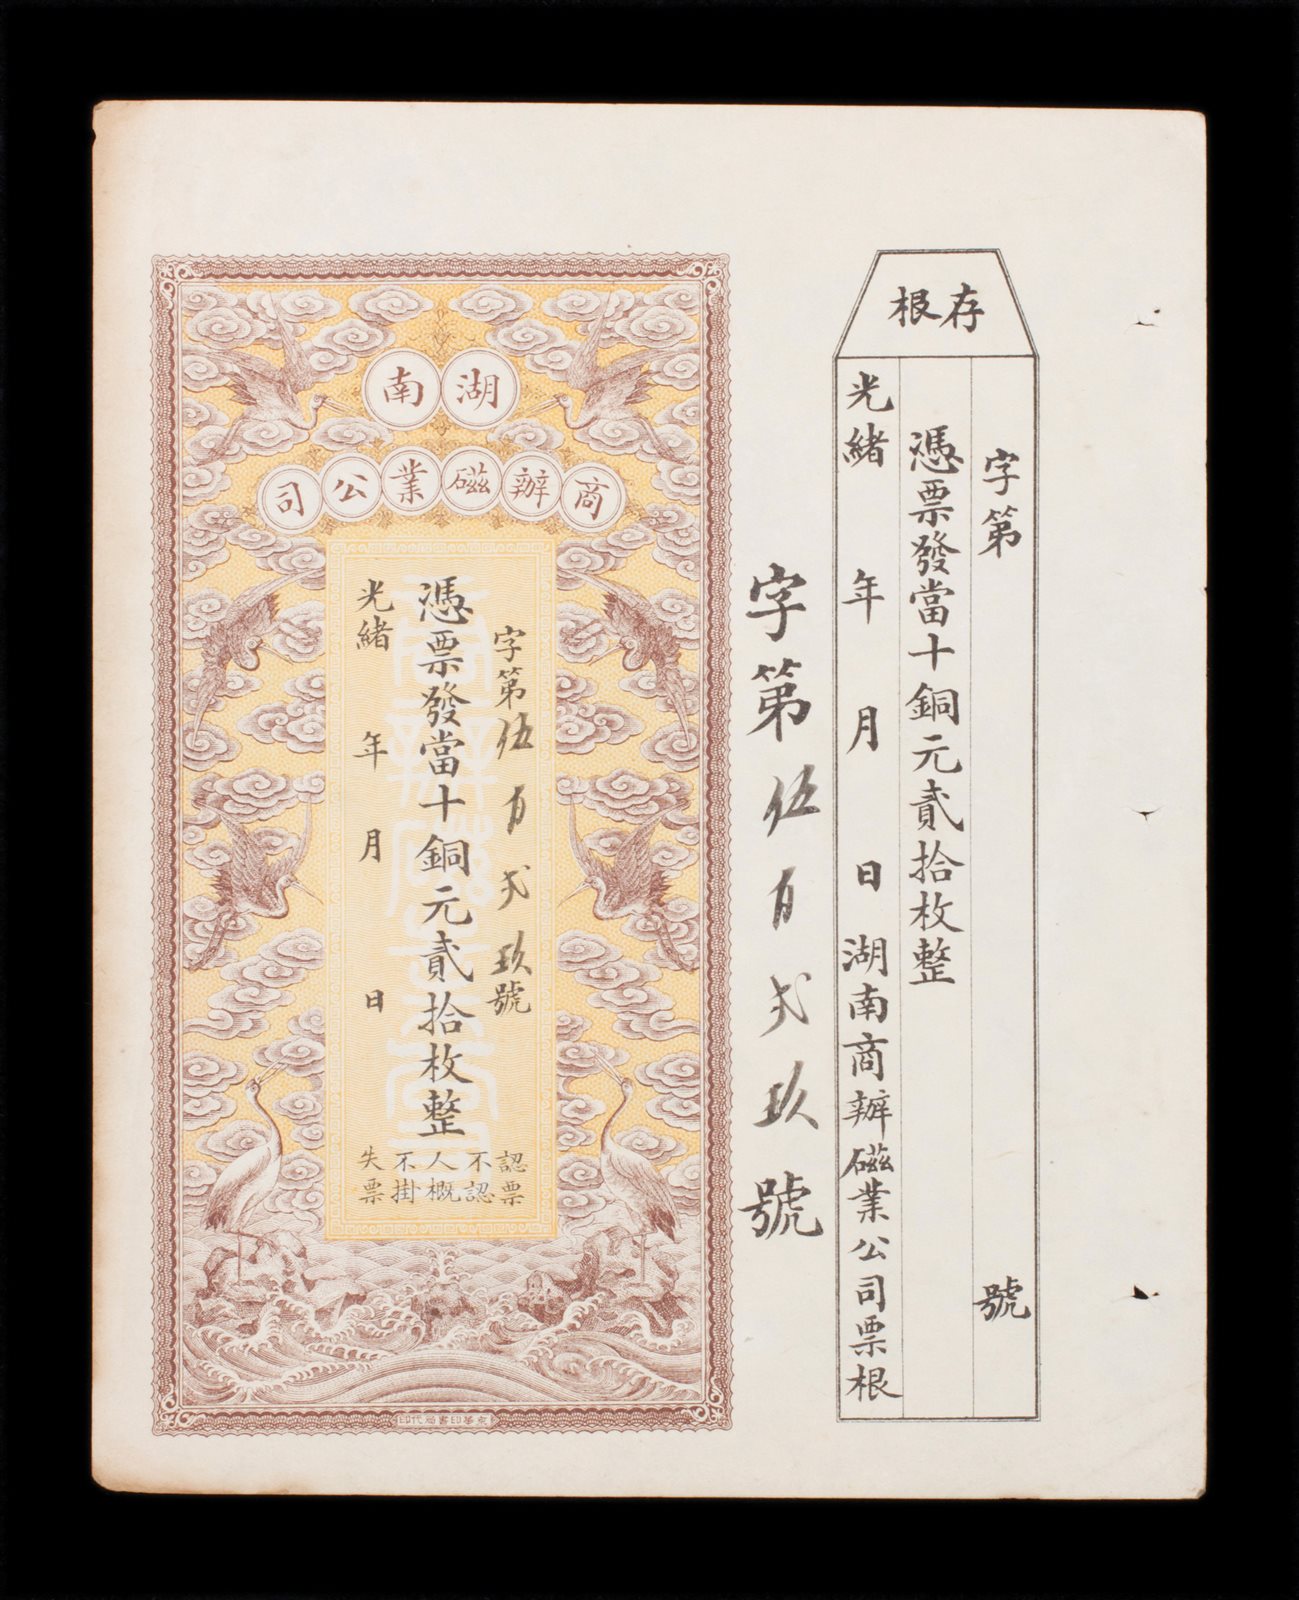 存根
字第 號
憑票發當十銅元貳拾枚整
光緒 年 月 日湖南商辦磁業公司票根
字第伍百弍玖號
湖南
商辦磁業公司
字第伍百弍玖號
憑票發當十銅元貳拾枚整
光緒 年 月 日
認票
不認
人概
不掛
失票
京華印書局代印